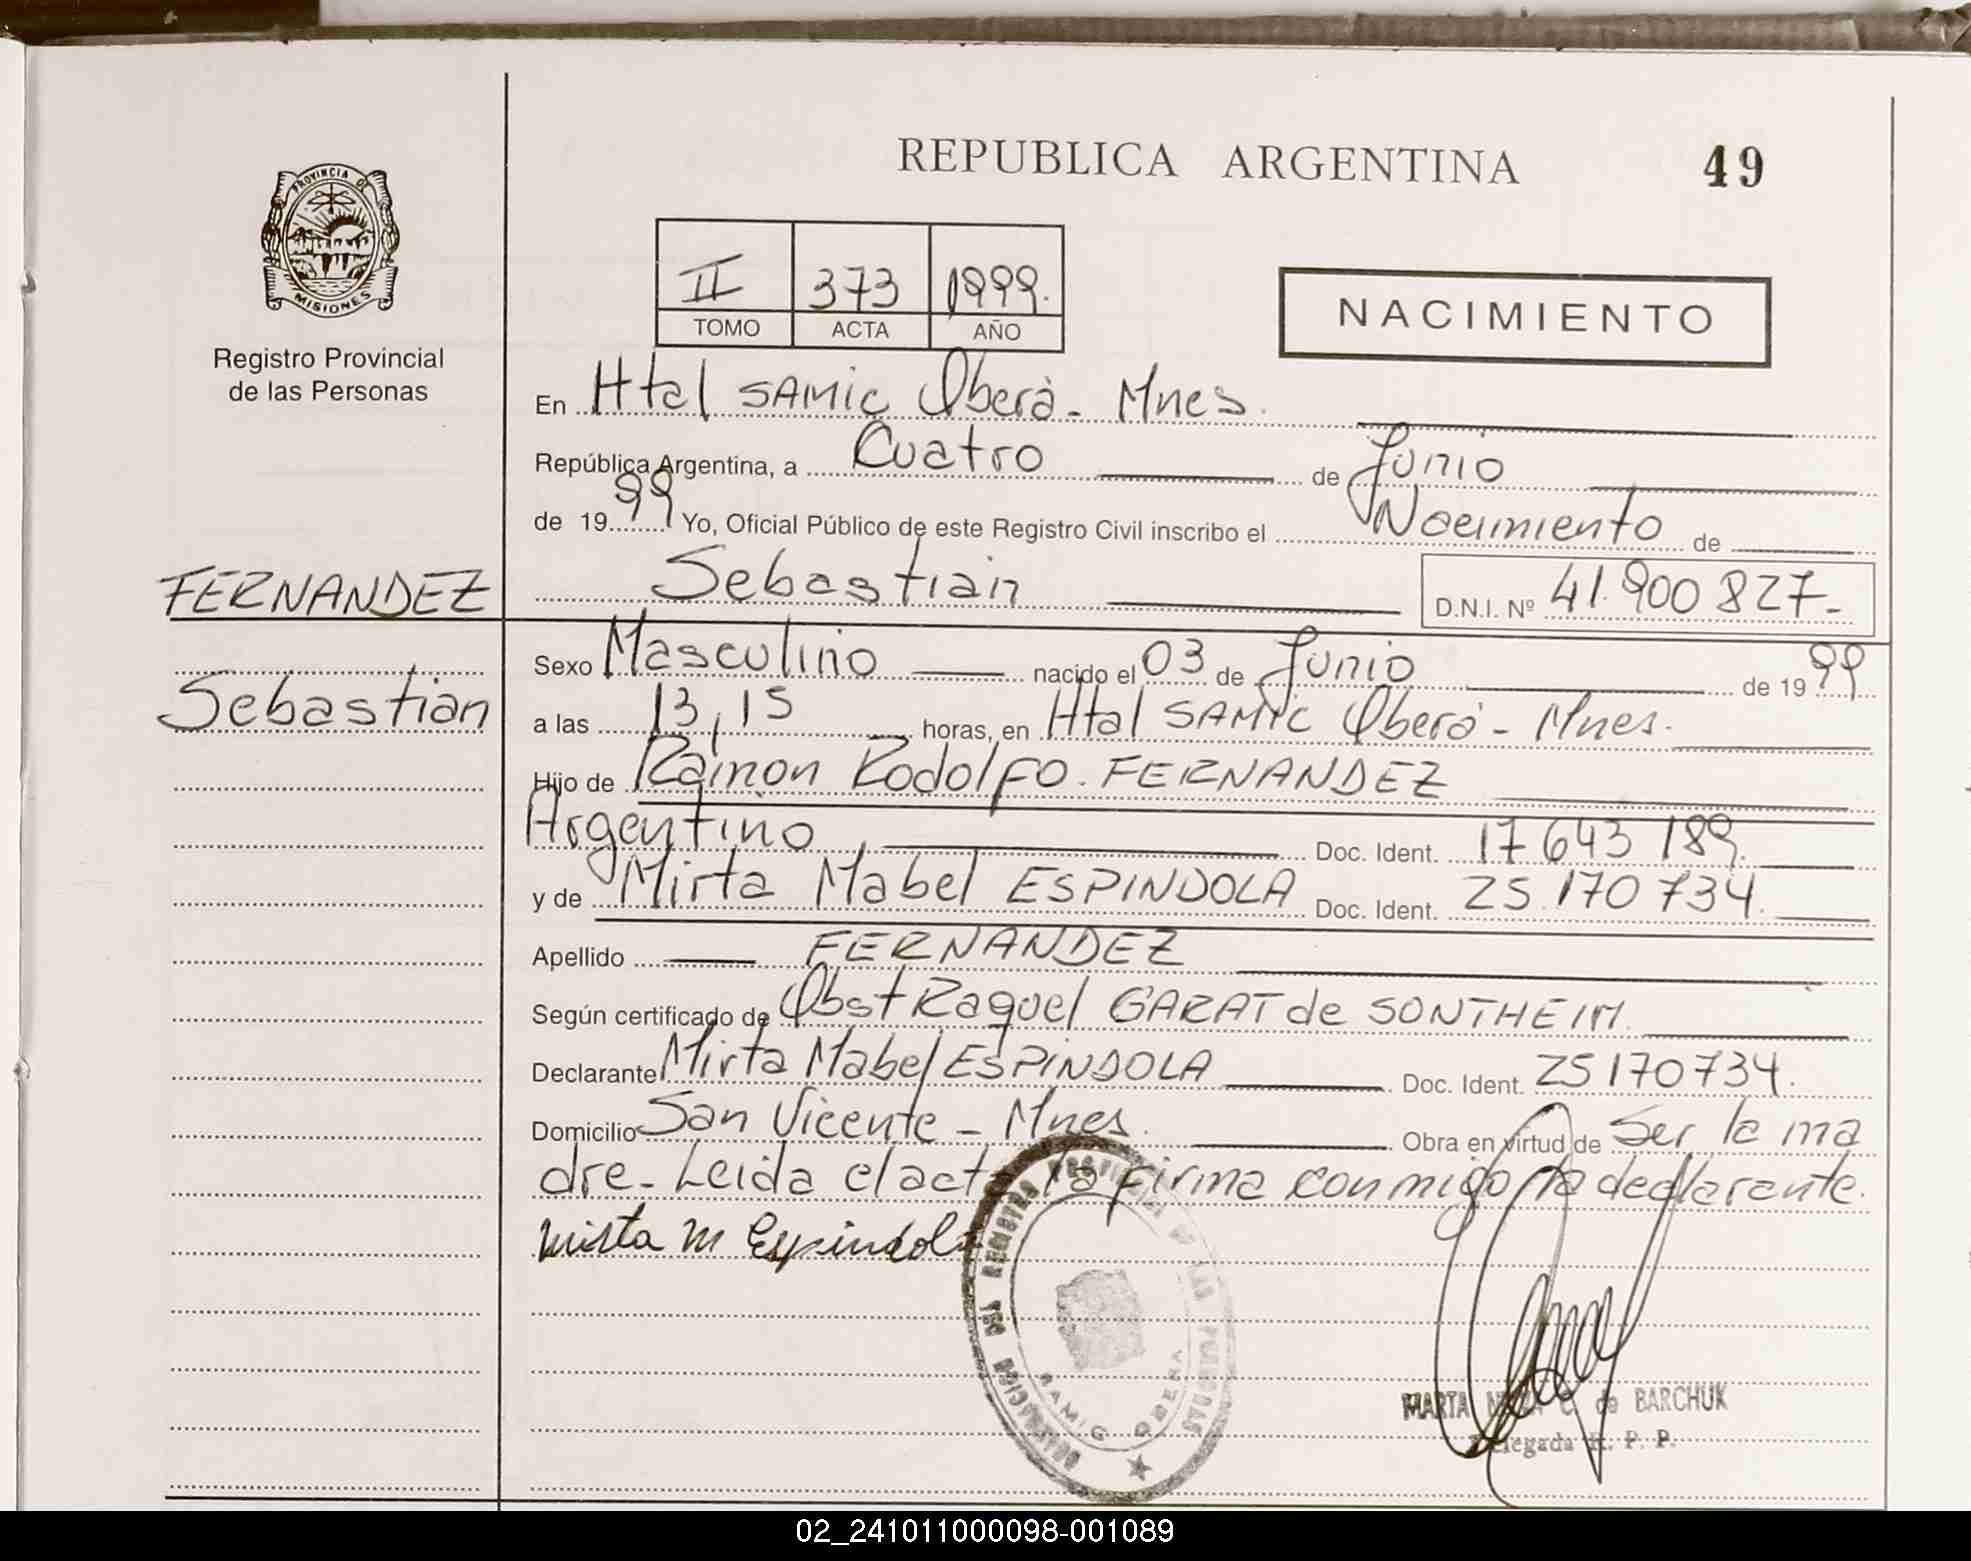 REPUBLICA ARGENTINA
49
PROVINCIA DE
MISIONES
Registro Provincial
de las Personas
II 373 1999.
TOMO ACTA AÑO
NACIMIENTO
En Htal SAMIC Oberà - Mnes.
República Argentina, a Cuatro de Junio
de 1999 Yo, Oficial Público de este Registro Civil inscribo el Nacimiento de
FERNANDEZ
Sebastian
D.N.I. Nº 41.900 827-
Sexo Masculino nacido el 03 de Junio de 1999
Sebastian
a las 13,15 horas, en Htal SAMIC Oberá - Mnes.
Hijo de Ramon Rodolfo. FERNANDEZ
Argentino Doc. Ident. 17 643 189.
y de Mirta Mabel ESPINDOLA Doc. Ident. 25.170 734.
Apellido FERNANDEZ
Según certificado de Obst Raquel GARAT de SONTHEIM
Declarante Mirta Mabel ESPINDOLA Doc. Ident. 25170734.
Domicilio San Vicente - Mnes. Obra en virtud de Ser la ma
dre - Leida el acta la firma conmigo la declarante.
Mirta M Espindola
MARTA C. de BARCHUK
Delegada R. P. P.
02_241011000098-001089